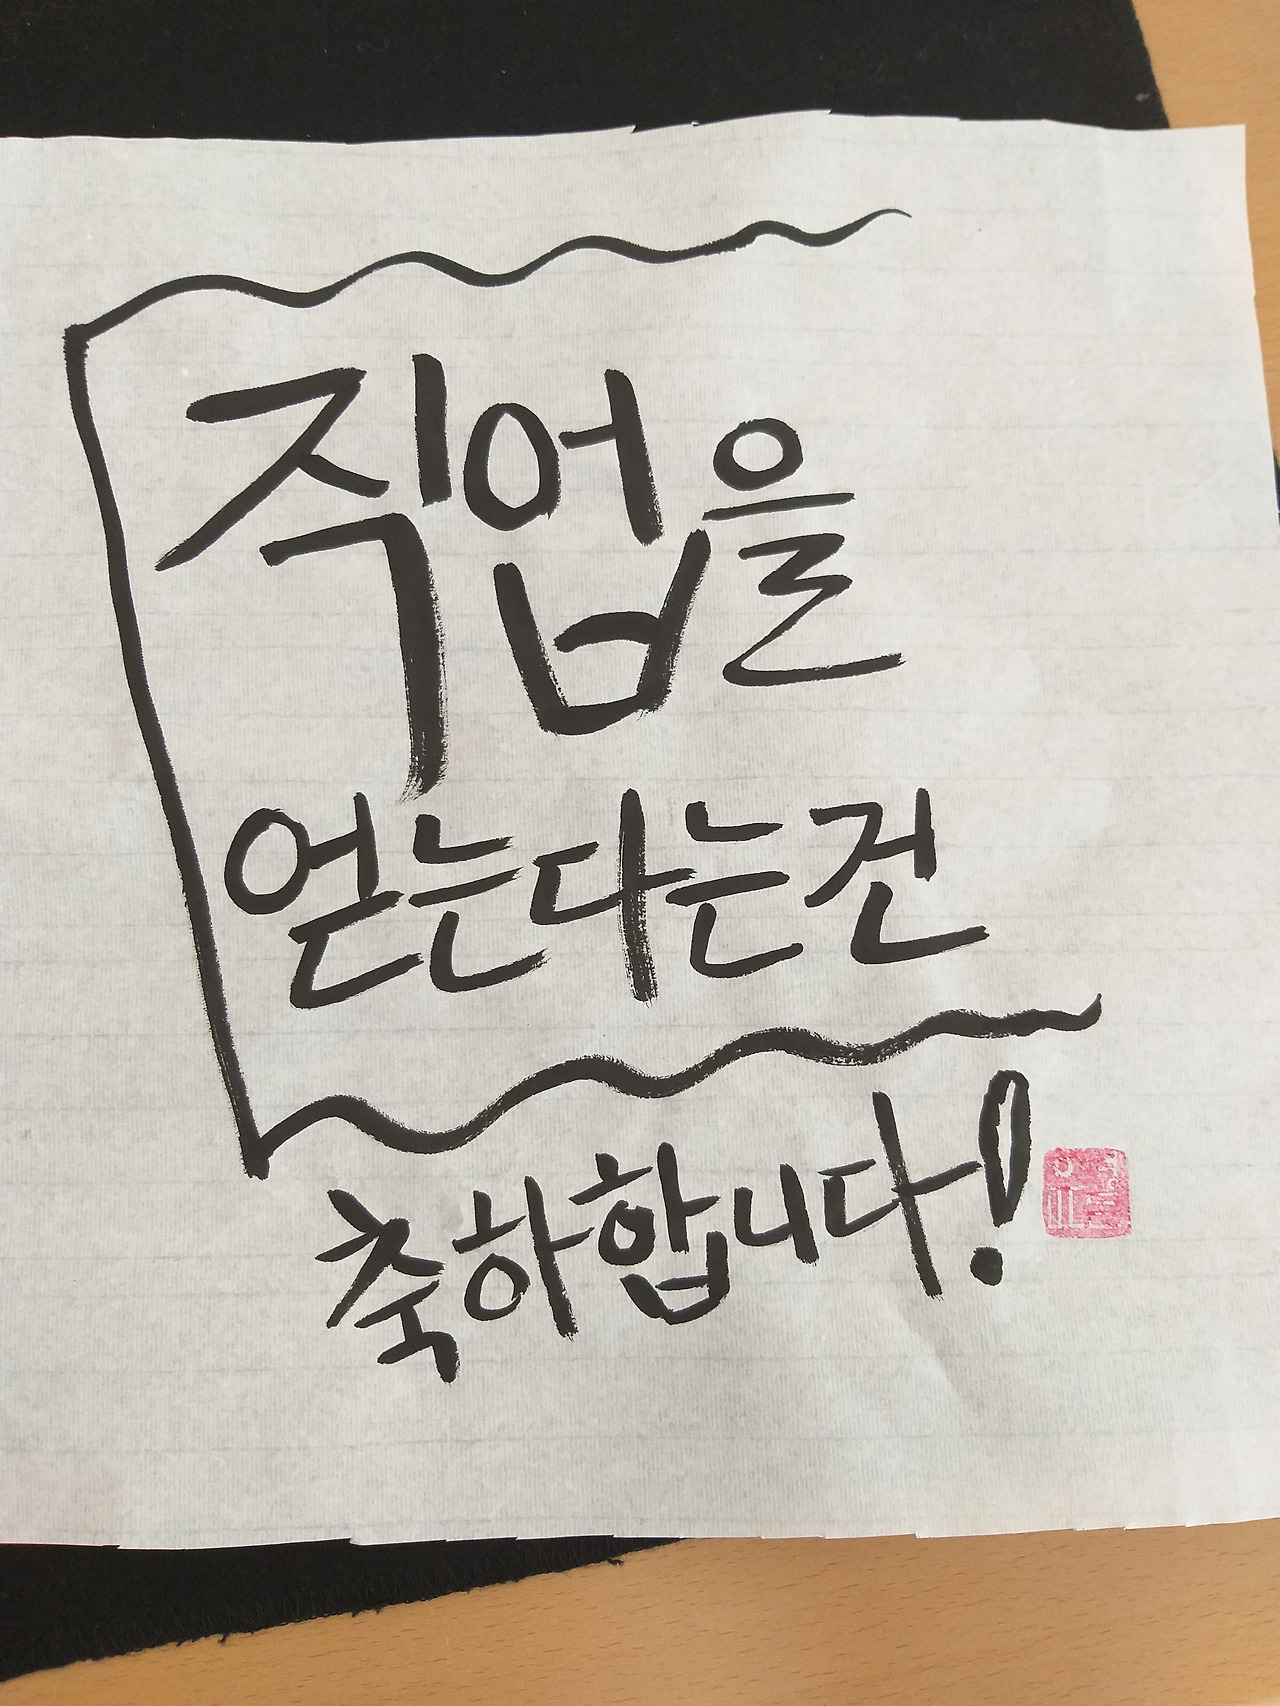 직업을
얻는다는건
축하합니다!